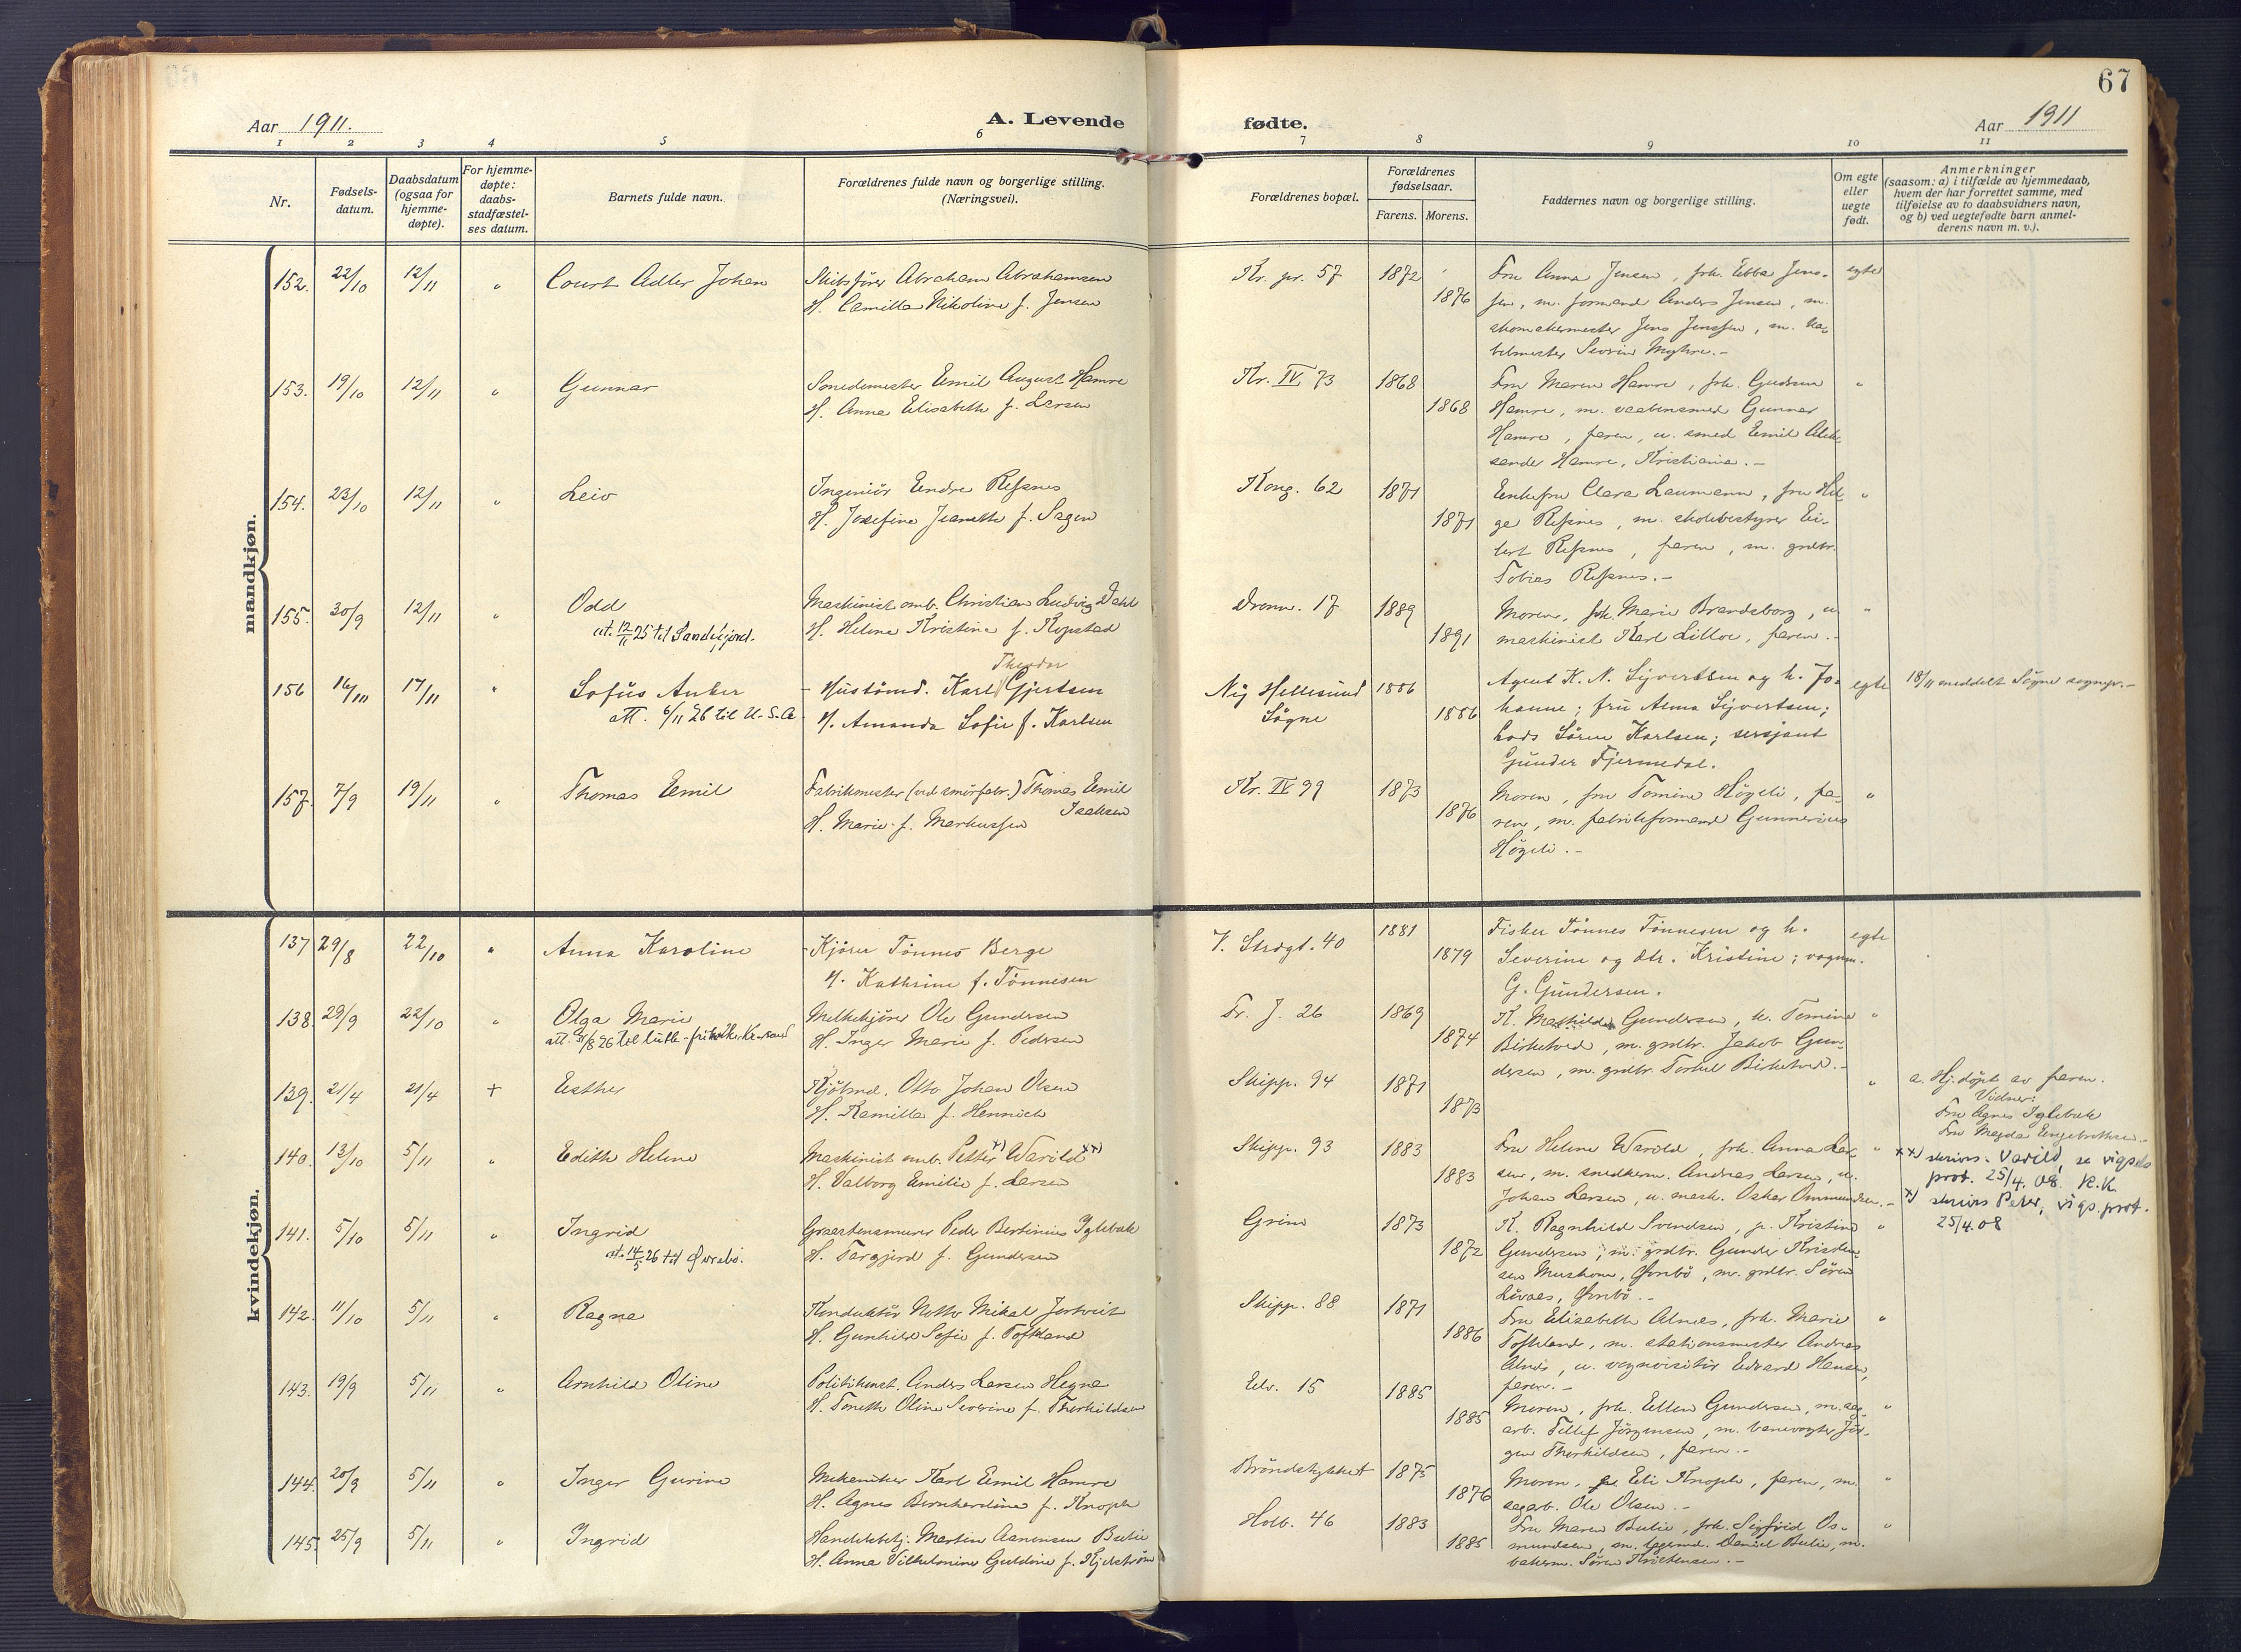 67
Aar 1911.
A. Levende fødte.
Aar 1911
1 2 3 4 5 6 7 8 9 10 11
Nr.
Fødsels-
datum.
Daabsdatum
(ogsaa for
hjemme-
døpte).
For hjemme-
døpte:
daabs-
stadfæstel-
ses datum.
Barnets fulde navn.
Forældrenes fulde navn og borgerlige stilling.
(Næringsvei).
Forældrenes bopæl.
Forældrenes
fødselsaar.
Farens. Morens.
Faddernes navn og borgerlige stilling.
Om egte
eller
uegte
født.
Anmerkninger
(saasom: a) i tilfælde av hjemmedaab,
hvem der har forrettet samme, med
tilføielse av to daabsvidners navn,
og b) ved uegtefødte barn anmel-
derens navn m. v.).
mandkjøn.
152. 22/10 12/11 " Court Adler Johan
Skibsfører Abraham Abrahamsen
H. Camilla Nikoline f. Jensen
Kr. pr. 57 1872 1876
Fru Anna Jensen, frk. Ebba Jens-
sen, m. formand Anders Jensen, m.
skomakermester Jens Jenssen, m.
Severin Myhre.-
egte
153. 19/10 12/11 " Gunnar
Smedemester Emil August Hamre
H. Anna Elisabeth f. Larsen
Kr. IV 73 1868 1868
Fru Maren Hamre, frk. Gudrun
Hamre, m. vaabensmed Gunnar
Hamre, faren, u. smed Emil Alek-
sander Hamre, Kristiania.-
"
154. 23/10 12/11 " Leiv
Ingeniör Endre Refsnes
H. Josefine Jeanette f. Sagen
Kong. 62 1871 1871
Enkefru Clara Laumann, fru Hel-
ge Refsnes, m. skolebestyrer Ei-
lert Refsnes, faren, m. grdbr.
Tobias Refsnes.-
"
155. 30/9 12/11 " Odd
att. 12/11 25 til Sandefjord.
Maskinist omb. Christian Ludvig Dahl
H. Helene Kristine f. Kopstad
Dronn. 17 1889 1891
Moren, frk. Marie Brandsborg, u.
maskinist Karl Lilloe, faren.-
"
156 16/10 17/11 " Sofus Anker
att. 6/11 26 til U.S.A.
Theodor
Hüsömd. Karl Gjertsen
H. Amanda Sofie f. Karlsen
Ny Hellesund
Søgne
1886 1886
Agent K. N. Sijvertsen og h. Jo-
hanne; fru Anna Sijvertsen;
lods Sören Karlsen; sersjant
Gunder Fjermedal.
egte
18/11 meddelt Søgne sognepr.-
157. 7/9 19/11 " Thomas Emil
Fabrikmester (ved smörfabr.) Thomas Emil
Isaksen
H. Marie f. Markussen
Kr. IV 99 1873 1876
Moren, fru Tomine Högeli, fa-
ren, m. fabrikformand Gunnerius
Högeli.-
"
kvindekjøn.
137 29/8 22/10 " Anna Karoline
Kjører Tönnes Berge
H. Kathrine f. Tönnesen
V. Strdgt. 40 1881 1879
Fisker Tönnes Tönnesen og h.
Severine og dtr. Kristine; vognm.
G. Gundersen.
egte
138. 29/9 22/10 " Olga Marie
Melkekjører Ole Gundersen
H. Inger Marie f. Pedersen
Fr. J. 26 1869 1874
K. Mathilde Gundersen, k. Tomine
Birketved, m. grdbr. Jakob Gun-
dersen, m. grdbr. Torkel Birketved.-
"
139. 21/4 21/4 + Esther
Kjöbmd. Otto Johan Olsen
H. Kamilla f. Hennich
Skipp. 94 1871 1873
"
a. Hj.döpt av faren.
Vidner:
Fru Agnes Iglebæk
Fru Magda Engebrethsen.-
140. 13/10 5/11 " Edith Helene
Maskinist omb. Petter x) Warild xx)
H. Valborg Emilie f. Larsen
Skipp. 93 1883 1883
Fru Helene Warild, frk. Anna Lar-
sen, m. snedkerm. Andreas Larsen, u.
Johan Larsen, u. mask. Oskar Ommundsen.-
"
xx) skrives Varild, se vigsels
prot. 25/4. 08. K.K.
x) skrives Peter, vigs. prot.
25/4.08
141. 5/10 5/11 " Ingrid
att. 14/5 26 til Øvrebø.
Graastensmurer Peder Bertinius Iglebæk
H. Targjerd f. Gundersen
Grim 1873 1872
K. Ragnhild Svendsen, p. Kristine
Gundersen, m. grdbr. Gunder Kristen-
sen Mushom, Øvrebö, m. grdbr. Sören
Livaas, Øvrebö.-
"
142. 11/10 5/11 " Ragna
Konduktör Notto Mikal Jortveit
H. Gunhild Sofie f. Toftland
Skipp. 88 1871 1886
Fru Elisabeth Alnes, frk. Marie
Toftland, m. stationsmester Andreas
Alnes, u. vognvisitör Edvard Hansen,
faren.-
"
143. 19/9 5/11 " Arnhild Oline
Politikonst. Anders Larsen Hegna
H. Tomette Oline Severine f. Therkildsen
Elv. 15 1885 1885
Moren, frk. Ellen Gundersen, m. sag-
arb. Tellef Jörgensen, m. banevogter Jör-
gen Therkildsen, faren.-
"
144. 20/9 5/11 " Inger Gurine
Mekaniker Karl Emil Hamre
H. Agnes Bernhardine f. Knoph
Bröndstykket 1875 1876
Moren, Eli Knoph, faren, m.
sagarb. Ole Olsen.-
"
145. 25/9 5/11 " Ingrid
Handelsbetj. Martin Aanensen Bulie
H. Anna Vilhelmine Guldine f. Kjelström
Holb. 46 1883 1885
Fru Maren Bulie, frk. Sigfrid Os-
mundsen, m. Daniel Bulie, m.
bakerm. Sören Kristensen.-
"